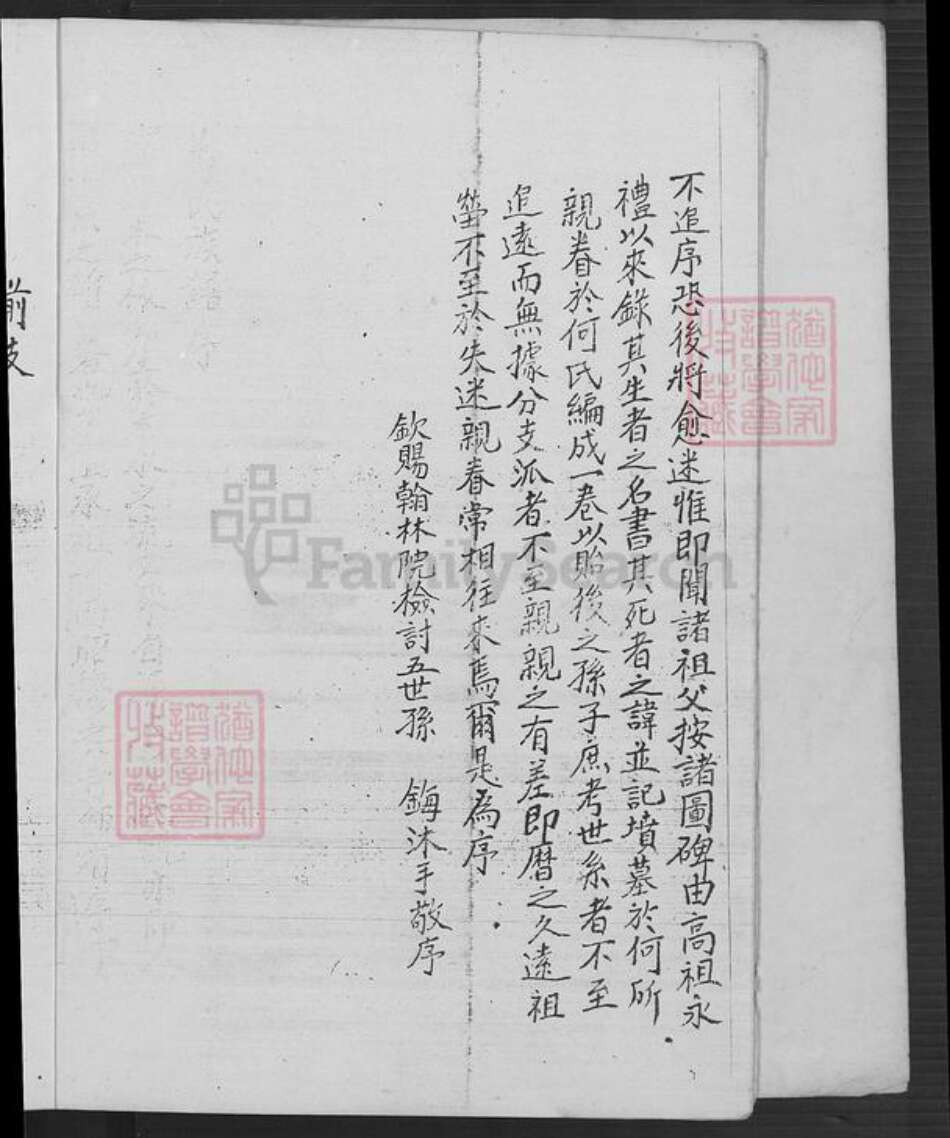 不追序恐後將愈迷惟即聞諸祖父按諸圖碑由高祖永
禮以來錄其生者之名書其死者之諱並記墳墓於何所
親眷於何氏編成一卷以貽後之孫子庶考世系者不至
追遠而無據分支派者不至親親之有差即曆之久遠祖
塋不至於失迷親眷常相往來焉爾是為序
欽賜翰林院檢討五世孫 鋂沐手敬序
前支
猶他家
譜學會
收藏
猶他家
譜學會
收藏
FamilySearch